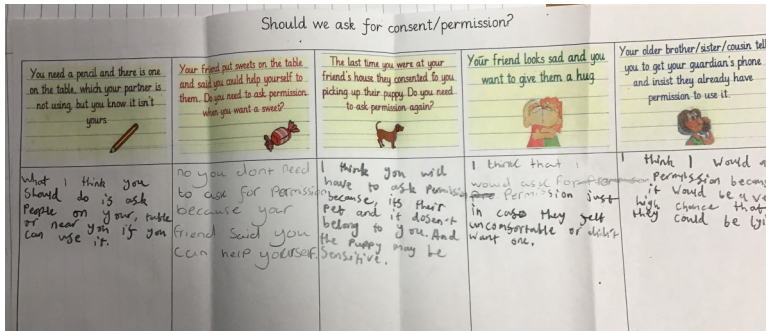 Should we ask for consent/permission?
You need a pencil and there is one
on the table, which your partner is
not using, but you know it isn't
yours
Your friend put sweets on the table
and said you could help yourself to
them. Do you need to ask permission
when you want a sweet?
The last time you were at your
friend's house they consented to you
picking up their puppy. Do you need
to ask permission again?
Your friend looks sad and you
want to give them a hug
Your older brother/sister/cousin tell
you to get your guardian's phone
and insist they already have
permission to use it.
what I think you
Should do is ask
People on your, table
or near you if you
Can use it.
no you dont need
to ask for Permission
because your
friend said you
can help yourself.
I think you will
have to ask Permission
because, its their
Pet and it dosen't
belong to you. And
the Puppy may be
Sensitive.
I think that i
would ask for
Permission just
in case they felt
uncomfortable or didn't
want one.
I think I would a
Permission becau
it would be a ve
high chance that
they could be lyi